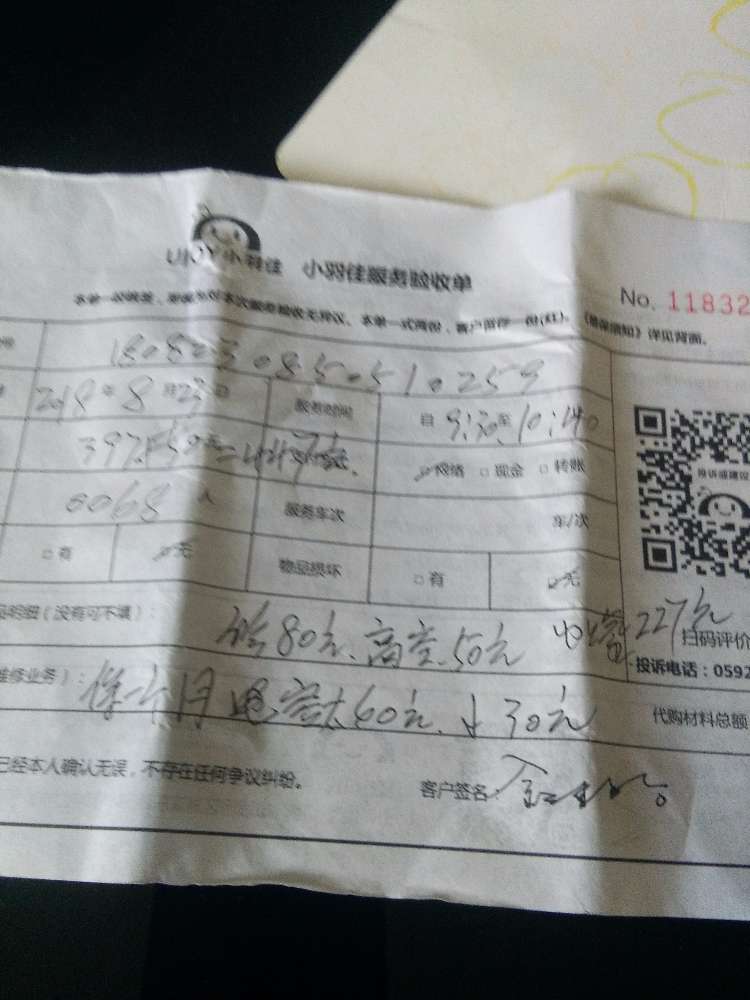 UJOY小羽佳 小羽佳服务验收单
No. 11832
本单一式两份，客户留存一份(红)。《维保须知》详见背面。
1808230850510259
2018年8月23日 服务时间 自9:30至10:40
397+50元=447元 网络 现金 转账
0068 人 服务车次 车/次
有 无 物品损坏 有 无
投诉或建议
品明细（没有可不填）：
80元、高空50元 227元
扫码评价
投诉电话：0592
维修业务）：
保一个月 电容大60元、小30元
代购材料总额
已经本人确认无误，不存在任何争议纠纷。
客户签名：